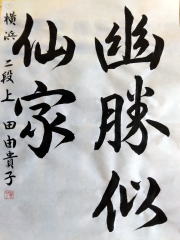 幽勝似
仙家
横浜 二段上 田由貴子